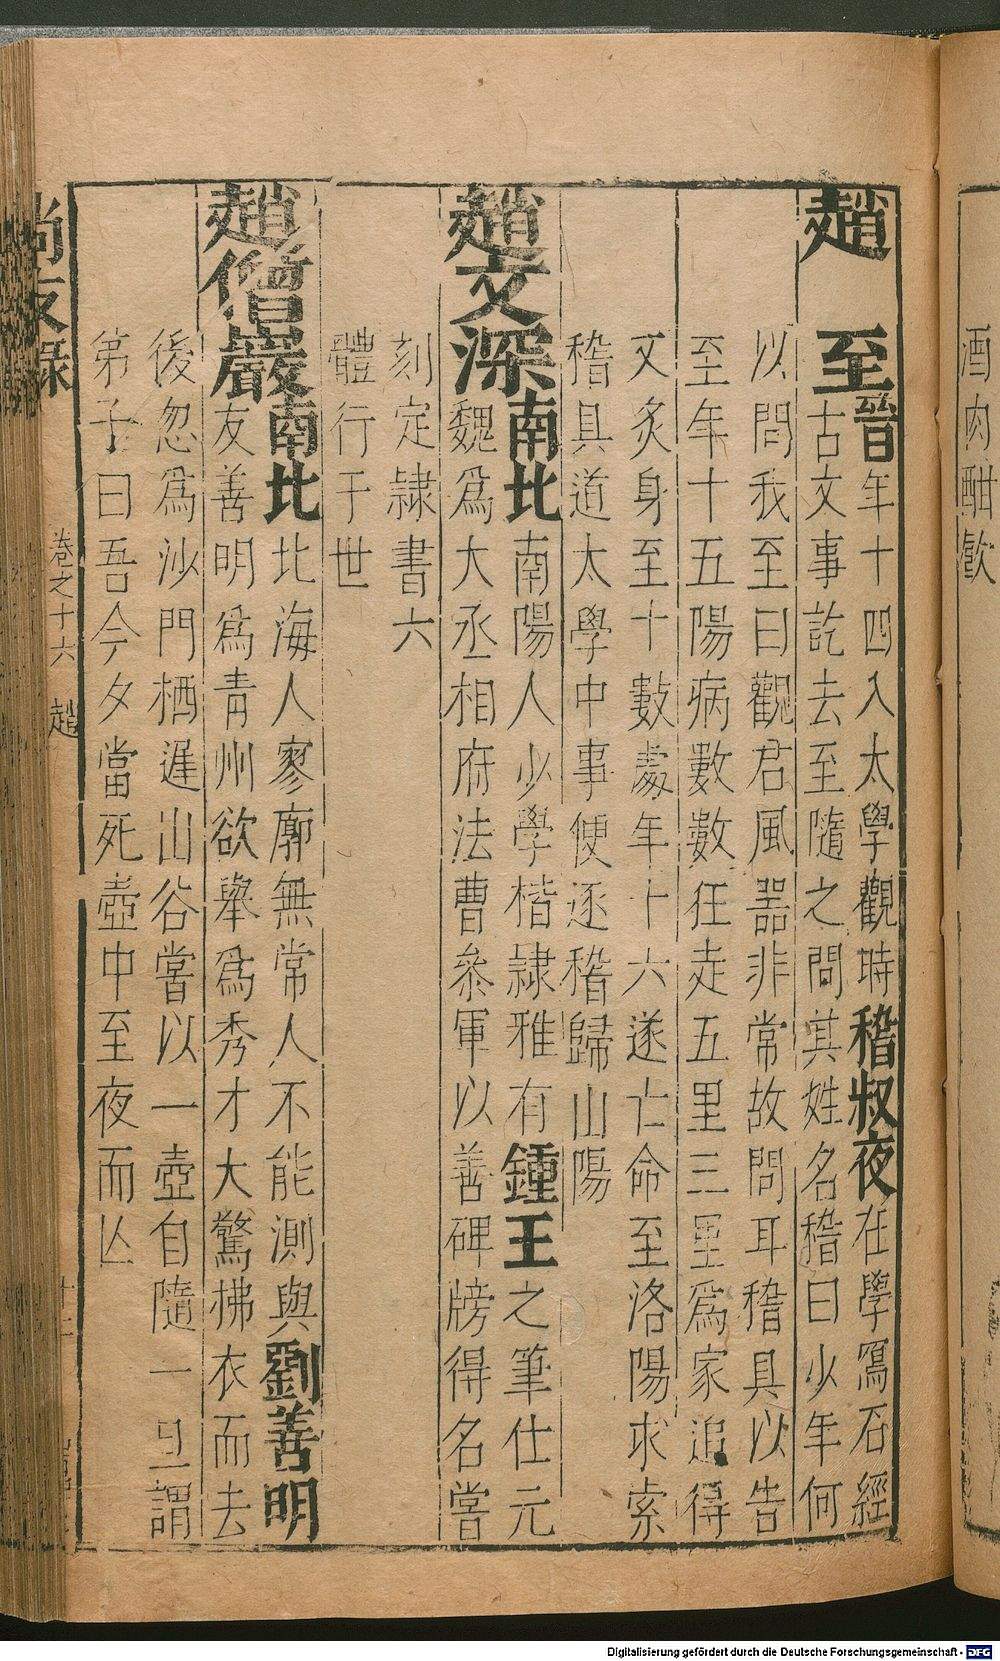 酒肉酣歡
趙 至晉年十四入太學觀時嵇叔夜在學寫石經
古文事訖去至隨之問其姓名嵇曰少年何
以問我至曰觀君風器非常故問耳嵇具以告
至年十五陽病數數狂走五里三里為家追得
又炙身至十數處年十六遂亡命至洛陽求索
嵇具道太學中事便逐嵇歸山陽
趙文深南北南陽人少學楷隷雅有鍾王之筆仕元
魏為大丞相府法曹叅軍以善碑牓得名嘗
刻定隷書六
體行于世
趙僧巖南北北海人寥廓無常人不能測與劉善明
友善明為青州欲舉為秀才大驚拂衣而去
後忽為沙門栖遲山谷嘗以一壺自隨一旦謂
第子曰吾今夕當死壺中至夜而亾
尚友錄 卷之十六 趙
Digitalisierung gefördert durch die Deutsche Forschungsgemeinschaft - DFG